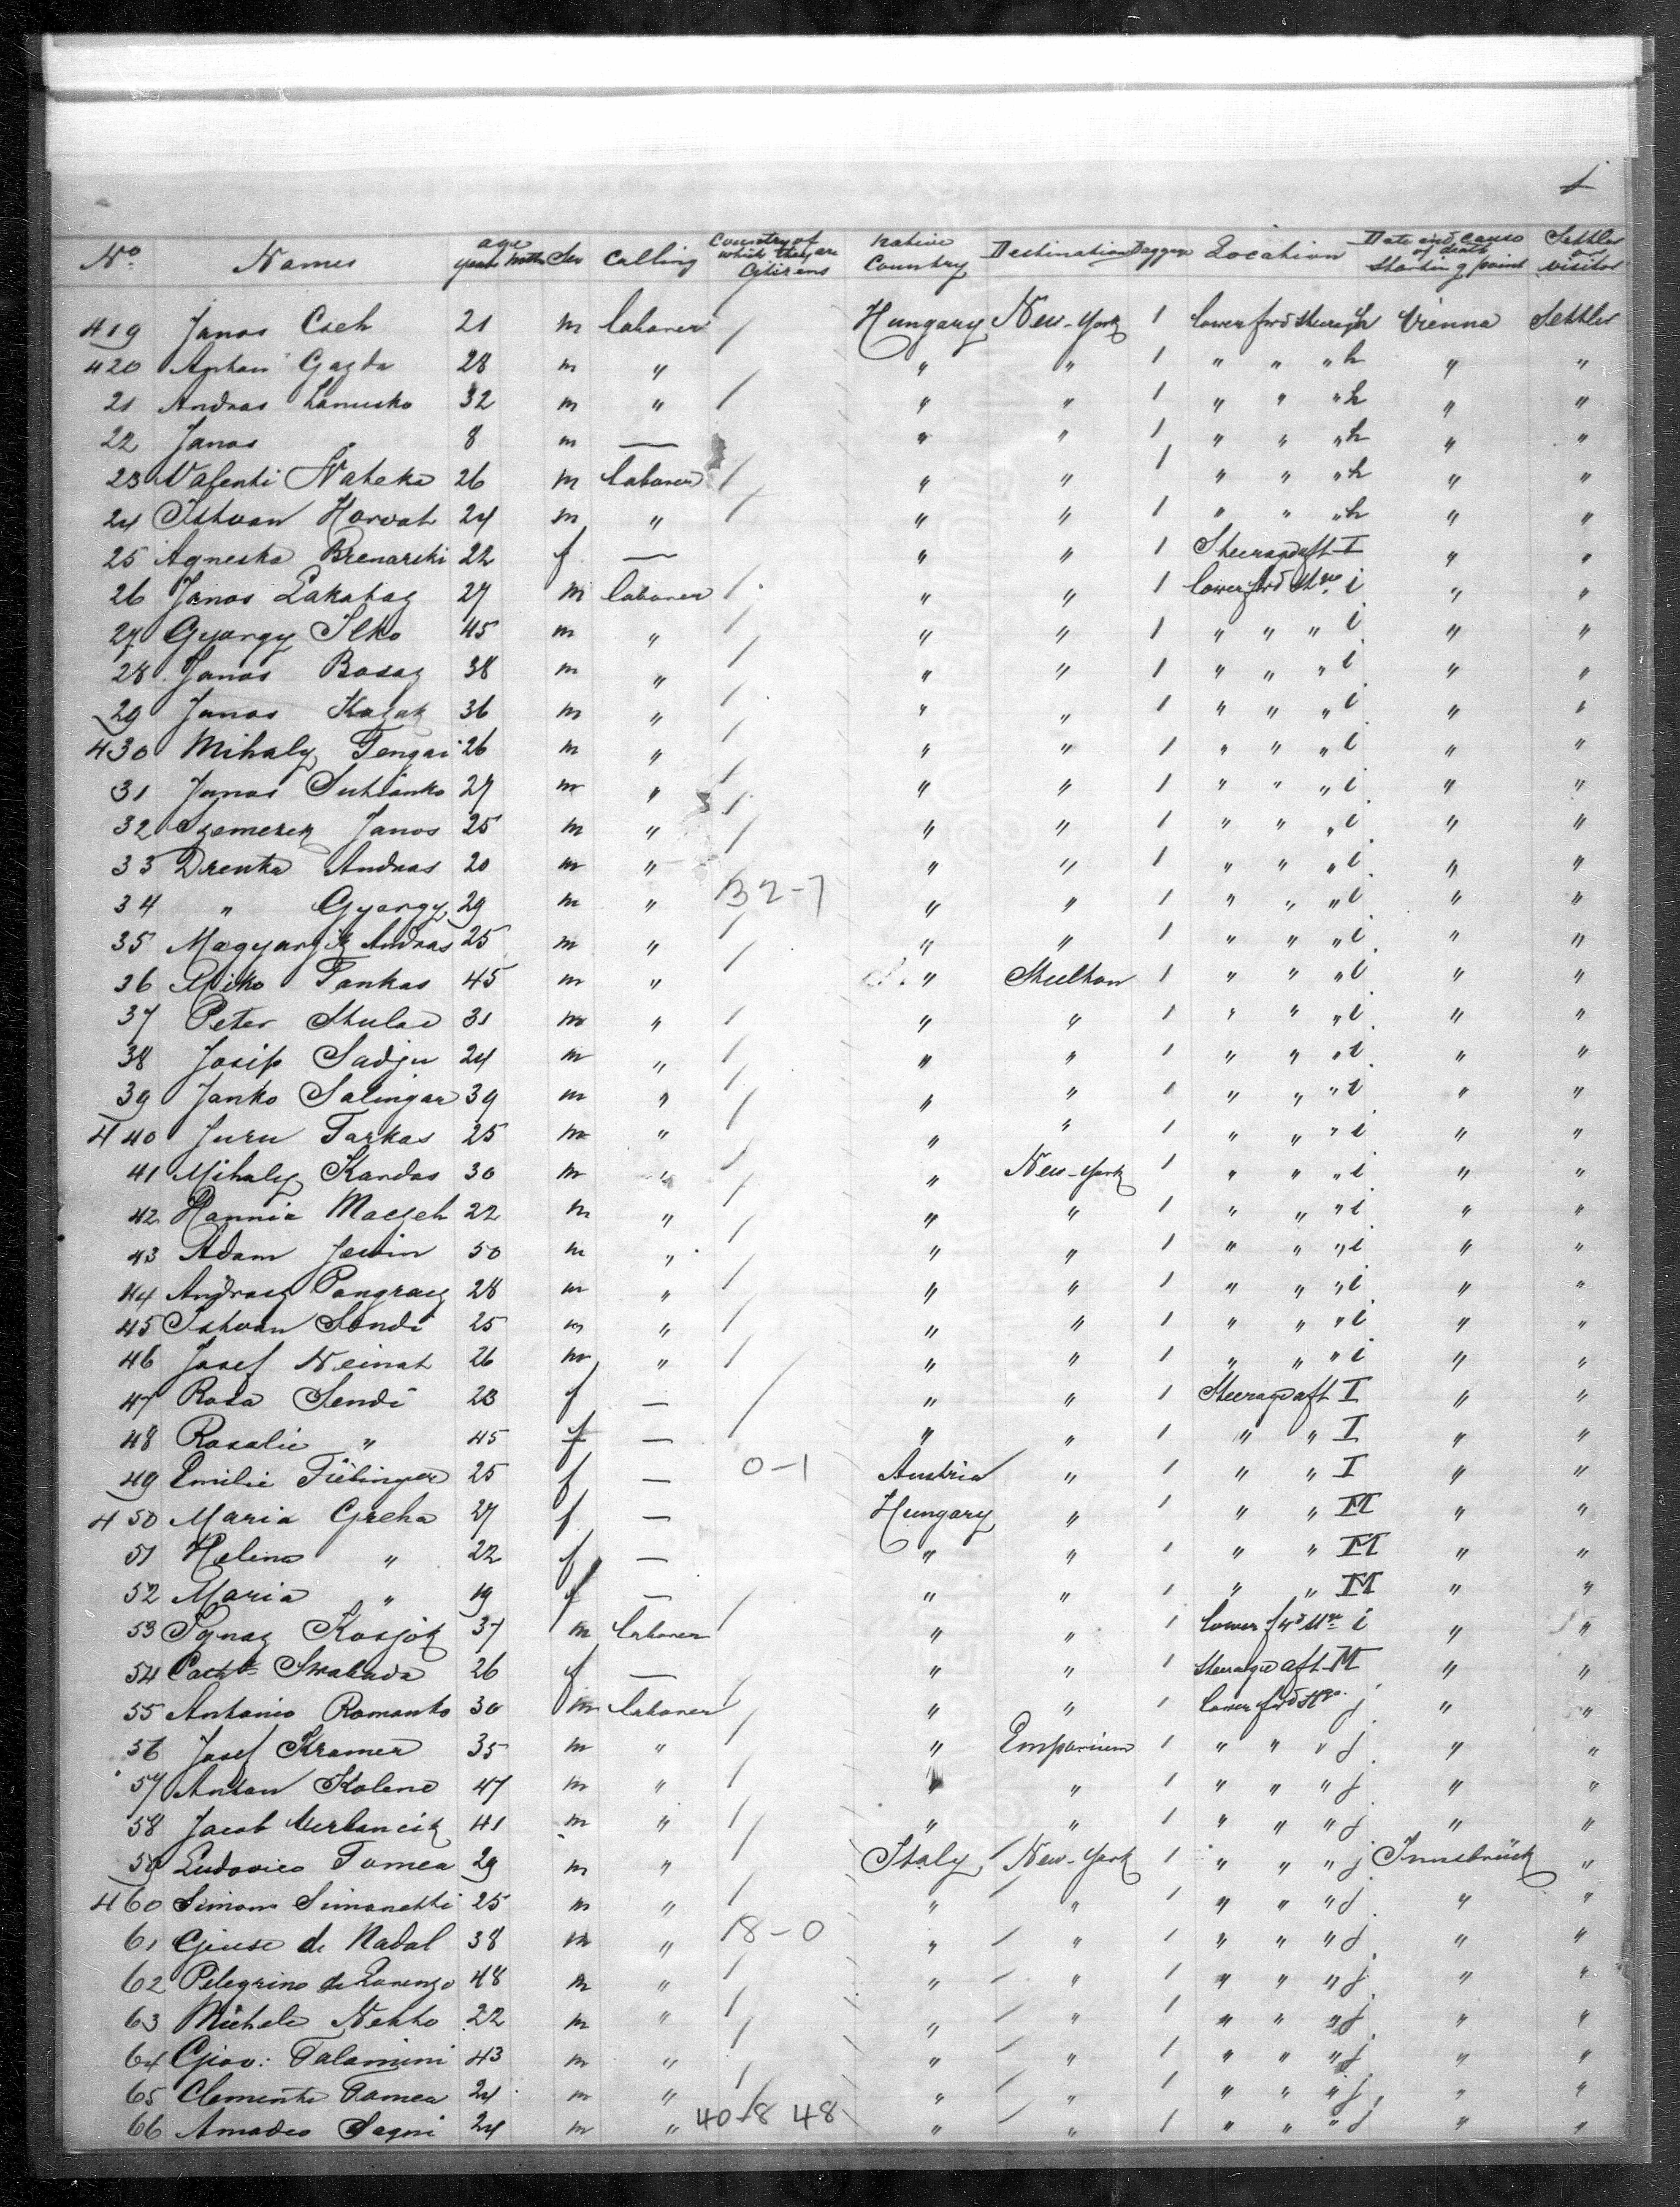 No. Names age years mths Sex Calling Country of which they are Citizens Native Country Destination Baggage Location Date and cause of death Starting point Settler or visitor
419 Janos Cseh 21 m laborer / Hungary New-York 1 Vienna Settler
420 Gazda 28 m " " " 1 " " " h " "
21 Andras 32 m " / " " 1 " " " h " "
22 Janos " 8 m — " " 1 " " " h " "
23 Valenti Nateka 26 m laborer / " " 1 " " " h " "
24 Istvan Horvat 24 m " / " " 1 " " " h " "
25 Agneska Brenarski 22 f — " " 1 Steerage aft I " "
26 Janos Lakatag 27 m laborer / " " 1 lower fwd Stge i " "
27 Gyorgy Ilko 45 m " / " " 1 " " " i " "
28 Janos Bosag 38 m " / " " 1 " " " i " "
29 Janos Kozak 36 m " / " " 1 " " " i " "
430 Mihaly Tengai 26 m " / " " 1 " " " i " "
31 Janos 27 m " / " " 1 " " " i " "
32 Szemerek Janos 25 m " / " " 1 " " " i " "
33 Drenka Andras 20 m " / " " 1 " " " i " "
34 " Gyorgy 29 m " 32-7 " " 1 " " " i " "
35 Andras 25 m " / " " 1 " " " i " "
36 Miko Tankas 45 m " / " Steelton 1 " " " i " "
37 Peter Stulac 31 m " / " " 1 " " " i " "
38 Josip Sadju 24 m " / " " 1 " " " i " "
39 Janko Salingar 39 m " / " " 1 " " " i " "
440 Juru Tarkas 25 m " / " " 1 " " " i " "
41 Mihaly Kardos 30 m " / " New-York 1 " " " i " "
42 Hannia 22 m " / " " 1 " " " i " "
43 Adam 50 m " / " " 1 " " " i " "
44 Pangracz 28 m " / " " 1 " " " i " "
45 Istvan Sendi 25 m " / " " 1 " " " i " "
46 Josef Neinat 26 m " / " " 1 " " " i " "
47 Rosa Sendi 23 f — / " " 1 Steerage aft I " "
48 Rosalie " 45 f — " " 1 " " I " "
49 Emilie 25 f — 0-1 Austria " 1 " " I " "
450 Maria Greha 27 f — Hungary " 1 " " M " "
51 Helena " 22 f — " " 1 " " M " "
52 Maria " 19 f — " " 1 " " M " "
53 Ignaz Kosjok 37 m laborer / " " 1 lower fwd Stge i " "
54 Swaboda 26 f — " " 1 Steerage aft M " "
55 Antonio Romanko 30 m laborer / " " 1 lower fwd Stge j " "
56 Josef Kramer 35 m " / " Emporium 1 " " " j " "
57 Antan Kolene 47 m " / " " 1 " " " j " "
58 Jacob 41 m " / " " 1 " " " j " "
59 Ludovico Tomea 29 m " / Italy New-York 1 " " " j Innsbrück "
460 Simon Simonetti 25 m " / " " 1 " " " j " "
61 Giuse de Nadal 38 m " 18-0 " " 1 " " " j " "
62 Pelegrino de Lorenzo 48 m " / " " 1 " " " j " "
63 Michele 22 m " / " " 1 " " " j " "
64 Giov: Talamini 43 m " / " " 1 " " " j " "
65 Clemente Tomea 24 m " / " " 1 " " " j " "
66 Amadeo Sagui 24 m " 40/8 48 " " 1 " " " j " "